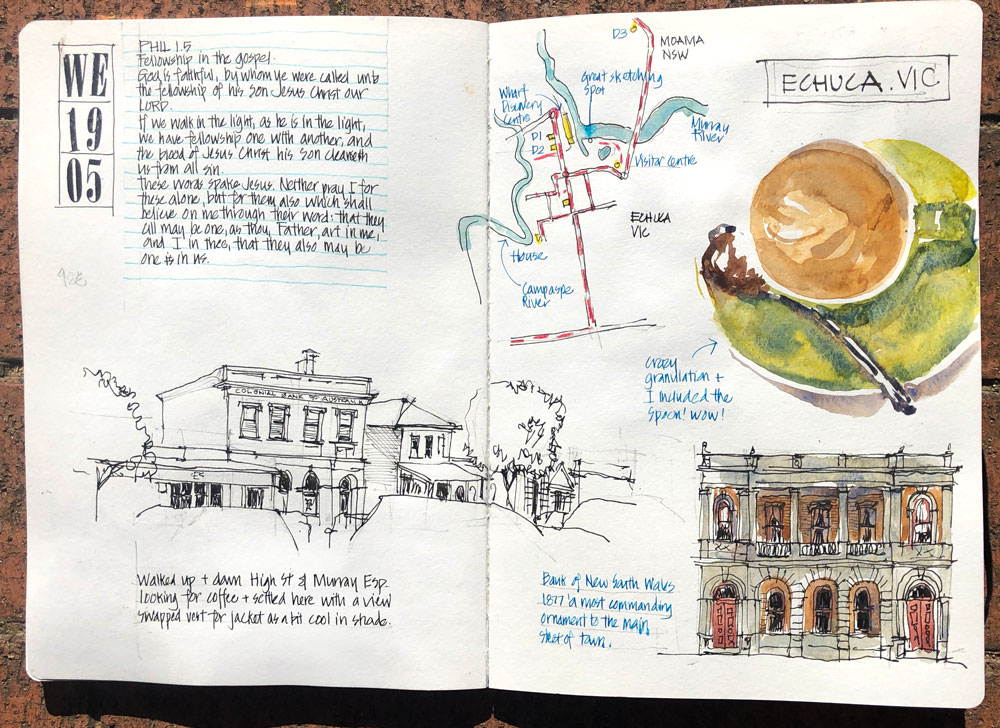 WE
19
05
PHIL 1.5
Fellowship in the gospel.
God is faithful, by whom ye were called unto
the fellowship of his son Jesus Christ our
LORD.
If we walk in the light, as he is in the light,
we have fellowship one with another, and
the blood of Jesus Christ his son cleaneth
us from all sin.
These words spake Jesus. Neither pray I for
these alone, but for them also which shall
believe on me through their word: that they
all may be one, as thou, Father, art in me,
and I in thee, that they also may be
one in us.
COLONIAL BANK OF AUSTRALIA
Walked up + down High St & Murray Esp.
looking for coffee + settled here with a view
swapped vest for jacket as a bit cool in shade.
D3
MOAMA
NSW
Great sketching
spot
Wharf
Discovery
Centre
D1
D2
Murray
River
Visitor Centre
ECHUCA
VIC
House
Campaspe
River
ECHUCA. VIC
crazy
granulation +
I included the
spoon! wow!
Bank of New South Wales
1877 'a most commanding
ornament to the main
street of town.